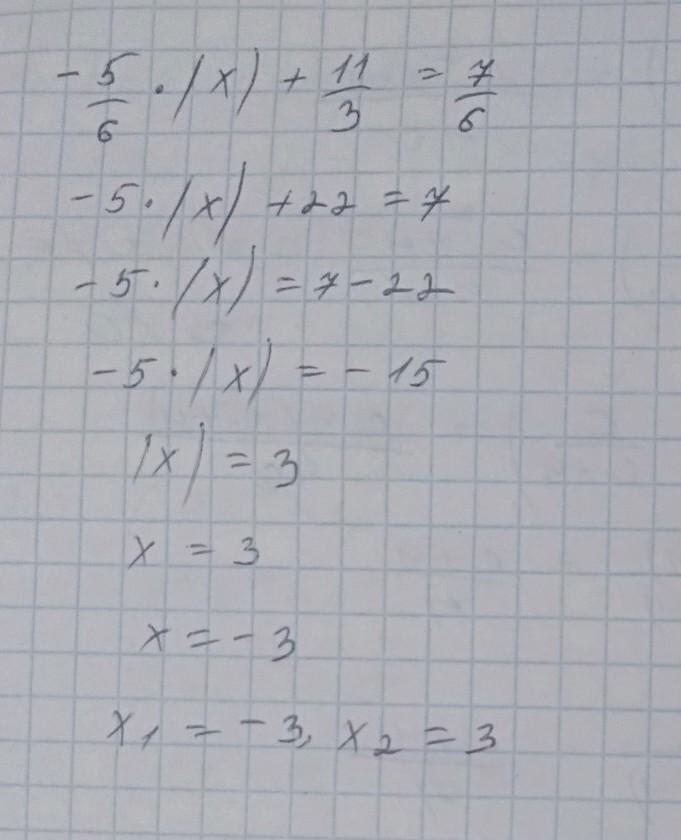 -5/6 · |x| + 11/3 = 7/6
-5 · |x| + 22 = 7
-5 · |x| = 7 - 22
-5 · |x| = -15
|x| = 3
x = 3
x = -3
x₁ = -3, x₂ = 3